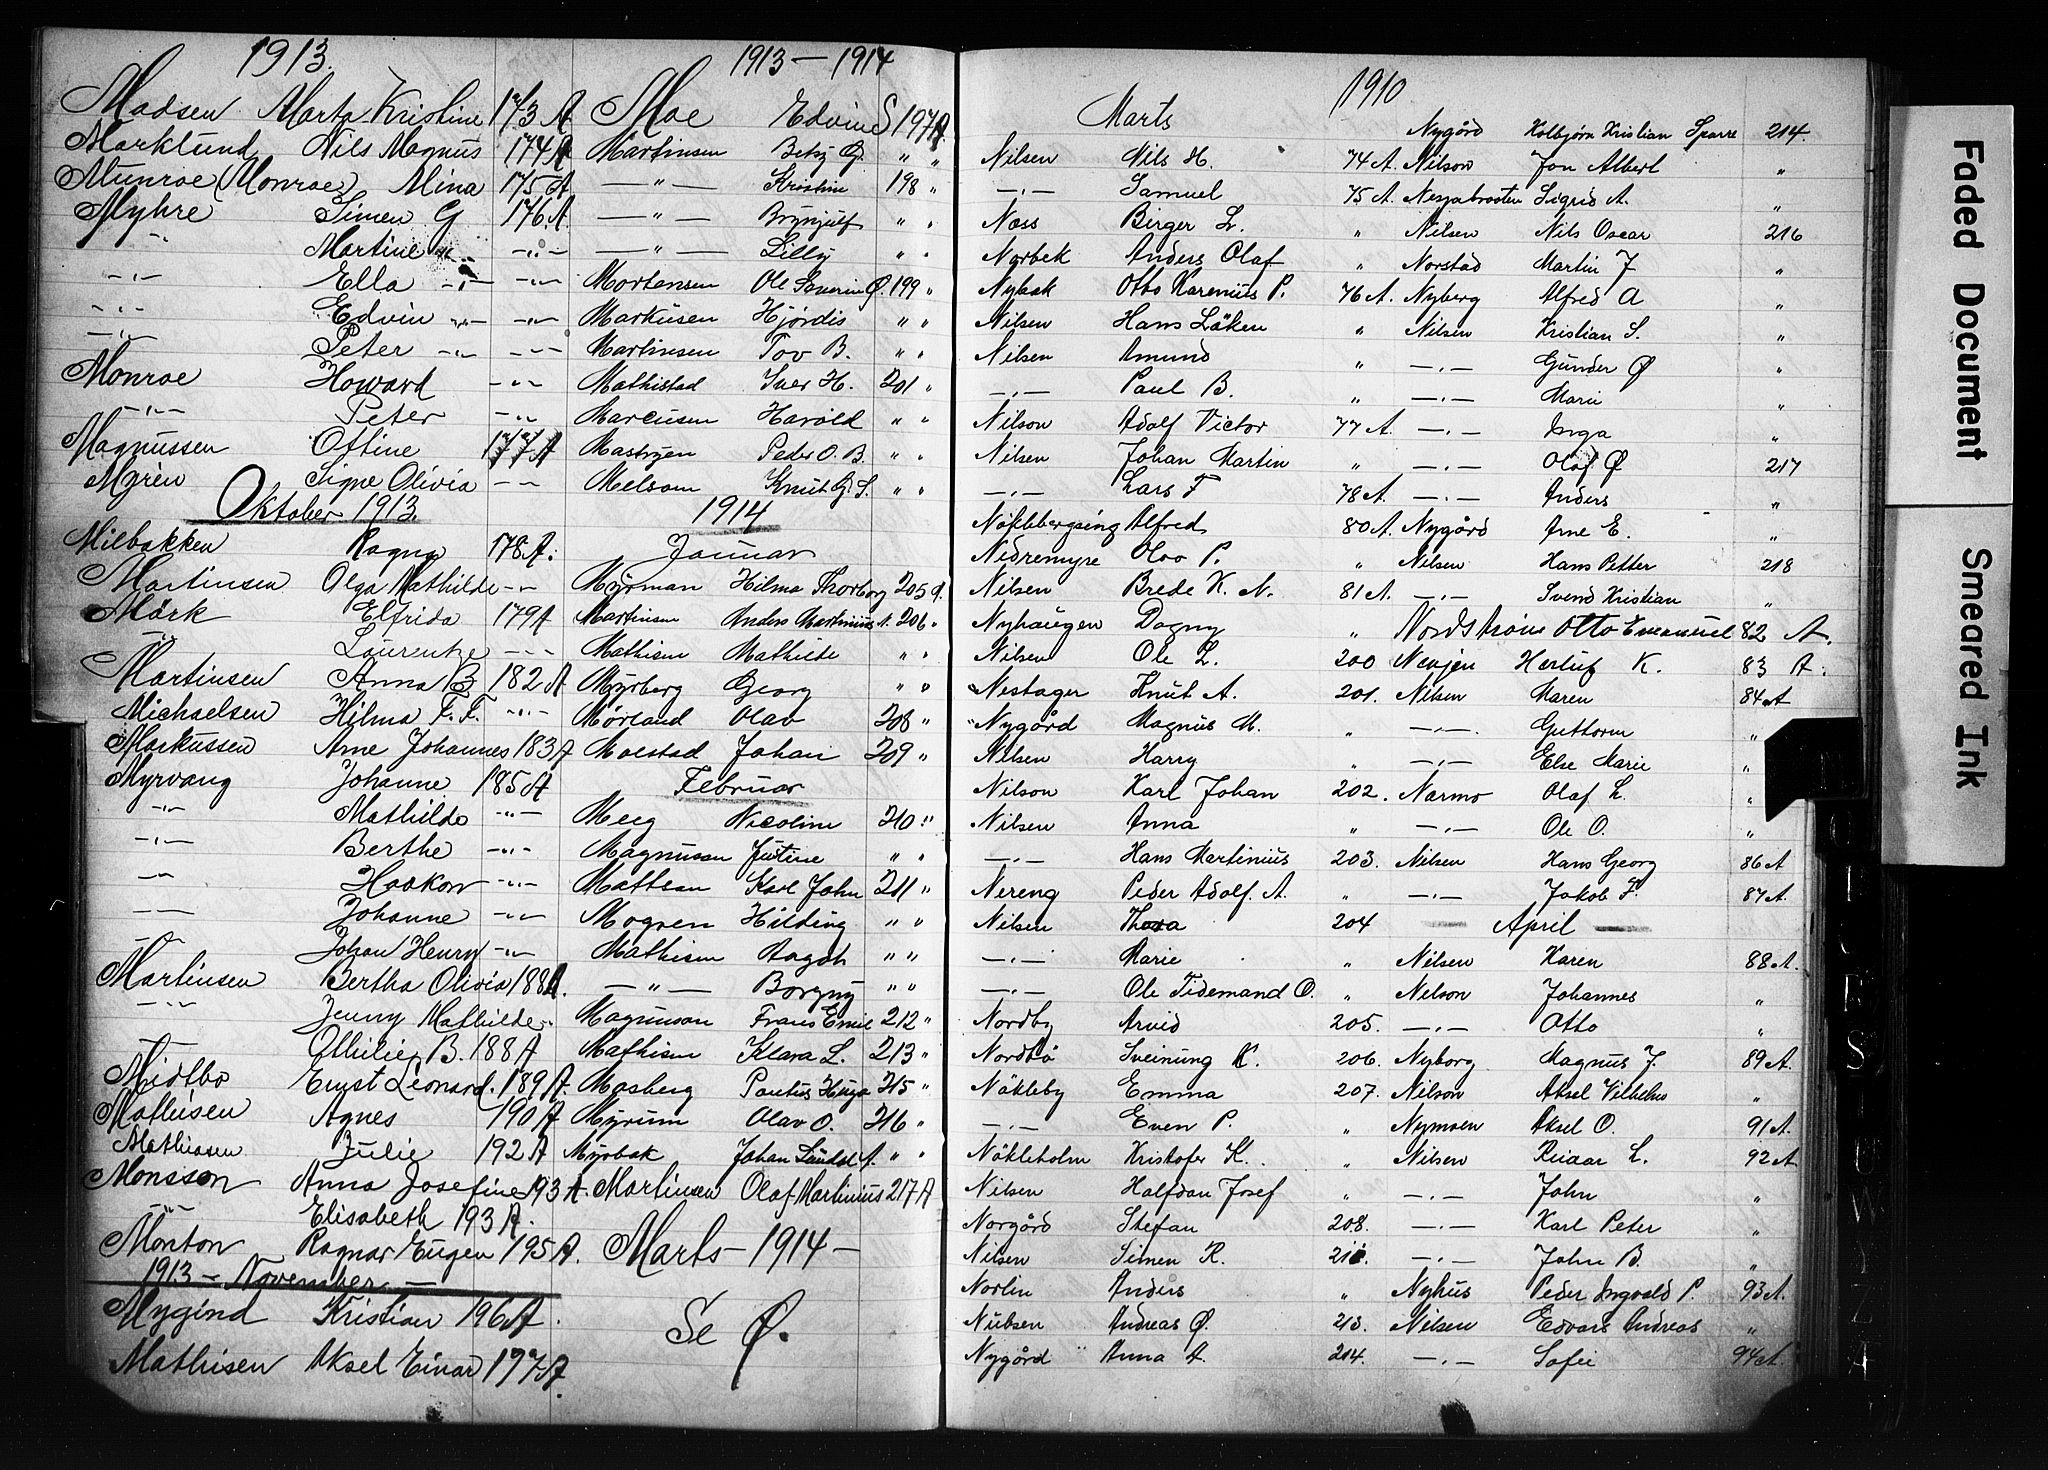 1913.
Madsen Marta Kristine 173 A
Marklund Nils Magnus 174 A
Munroe (Monroe) Mina 175 A
Myhre Simen G 176 A.
-"- Martine -"- -"-
-"- Ella -"- -"-
-"- Edvin -"- -"-
-"- Peter -"- -"-
Monroe Howard -"-
-"- Peter -"-
Magnussen Ottine 177 A
Myrén Signe Olivia -"-
Oktober 1913.
Milbakken Ragna 178 A.
Martinsen Olga Mathilde -"-
Mørk Elfrida 179 A
-"- Laurentze -"-
Martinsen Anna B 182 A
Michaelsen Hilma F. F. -"-
Markussen Arne Johannes 183 A
Myrvang Johanne 185 A
-"- Mathilde -"-
-"- Berthe -"-
-"- Haakon -"-
-"- Johanne -"-
-"- Johan Henry -"-
Martinsen Bertha Olivia 188 A.
-"- Jenny Mathilde -"-
-"- Othilie B. 188 A
Midtbø Ernst Leonard. 189 A.
Mathisen Agnes 190 A
Mathiasen Julie 192 A
Monsson Anna Josefine 193 A.
-"- Elisabeth 193 A.
Monton Ragnar Eugen 195 A.
1913 - November -
Mygind Kristian 196 A.
Mathisen Aksel Einar 197 A.
1913 - 1914
Moe Edvin S 197 A.
Martinsen Betsy G. " "
-"- Kristine 198 "
-"- Brynjulf " "
-"- Lilly " "
Mortensen Ole Severin Ø. 199 "
Markusen Hjørdis " "
Martinsen Tov B. " "
Mathistad Iver H. 201 "
Marcusen Harold " "
Mastryen Peder O. B. " "
Melsom Knut G. S. " "
1914
Januar
Myrman Hilma Thorborg 205 A.
Martinsen Anders Martinius M. 206 "
Mathisen Mathilde " "
Myrberg Georg " "
Mørland Olav 208 "
Moestad Johan 209 "
Februar
Meeg Nicoline 210 "
Magnuson Justine " "
Mattson Karl John 211 "
Mogren Hilding " "
Mathisen Aagot " "
-"- Borgny " "
Magnuson Frans Emil 212 "
Mathisen Klara L. 213 "
Mosberg Pontus Hugo 215 "
Myrum Olav O. 216 "
Myrbak Johan Laudal A. " "
Martinsen Olaf Martinius 217 A
Marts - 1914 -
Se Ø.
1910
Marts
Nilsen Nils H. 74 A.
-"- Samuel 75 A.
Næss Birger L. "
Norbek Anders Olaf "
Nybak Otto Karenius P. 76 A.
Nilsen Hans Løken "
Nilsen Amund "
-"- Paul B. "
Nilson Adolf Victor 77 A.
Nilsen Johan Martin "
-"- Lars F 78 A.
Alfred 80 A.
Nidremyre Olao P. "
Nilsen Brede K. N. 81 A.
Nyhaugen Dagny "
Nilsen Ole L. 200
Nestager Knut A. 201.
Nygård Magnus M. "
Nilsen Harry "
Nilson Karl Johan 202.
Nilsen Anna "
-"- Hans Martinius 203.
Nereng Peder Adolf. A. "
Nilsen Thora 204
-"- Marie "
-"- Ole Tidemand O. "
Nordby Arvid 205.
Nordbø Sveinung K. 206.
Nökleby Emma 207.
-"- Even P. "
Nökleholm Kristofer K. "
Nilsen Halfdan Josef "
Norgård Stefan 208.
Nilsen Simen K. 211.
Norlin Anders "
Nielsen Andreas Ø. 213.
Nygård Anna A. 214.
Nygård Kolbjørn Kristian Sparre 214.
Nilson Jon Albert "
Sigrid A. "
Nilsen Nils Oscar 216
Norstad Martin J "
Nyberg Alfred A "
Nilsen Kristian S. "
-"- Gunder Ø "
-"- Marie "
-"- Inga "
-"- Olaf Ø 217
-"- Anders "
Nygård Arne E. "
Nilsen Hans Petter 218
-"- Svend Kristian "
Nordstrøm Otto Emanuel 82 A.
Herluf K. 83 A.
Nilsen Maren 84 A
-"- Guttorm "
-"- Else Marie "
Narmo Olaf L. "
-"- Ole O. "
Nilsen Hans Georg 86 A
-"- Jakob F. 87 A.
April
Nilsen Karen 88 A.
Nelson Johannes "
-"- Otto "
Nyborg Magnus J. 89 A.
Nilson Aksel Vilhelm "
Nymoen Aksel O. 91 A.
Nilsen Reidar L. 92 A
-"- John "
-"- Karl Peter "
-"- John B. "
Nyhus Peder Ingvald P. 93 A.
Nilsen Edvard Andreas "
-"- Sofie 94 A.
Faded Document
Smeared Ink